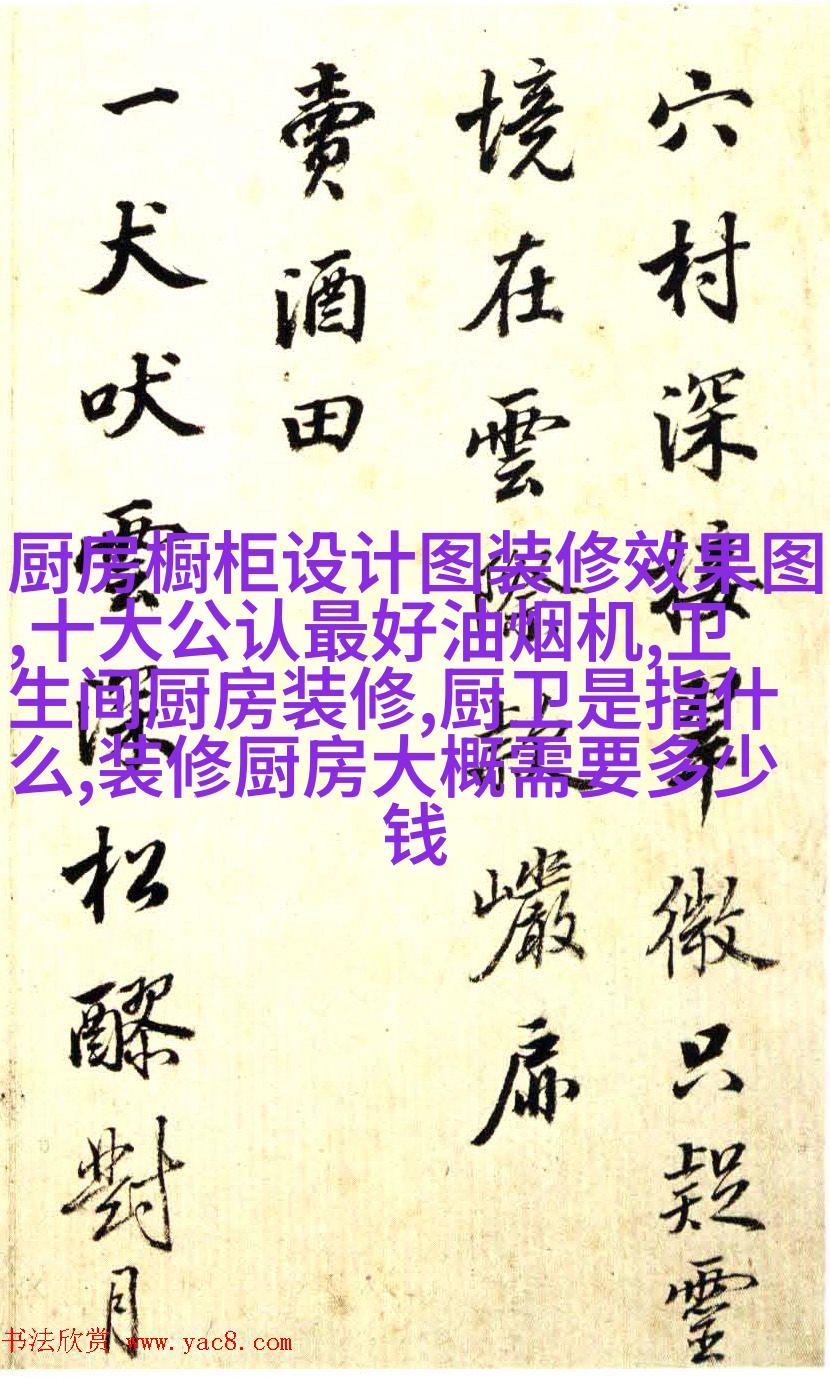 穴村深接翠微只疑靈
境在雲際巖扉
賣酒田
一犬吠雲深松醪對月
厨房橱柜设计图装修效果图
,十大公认最好油烟机,卫
生间厨房装修,厨卫是指什
么,装修厨房大概需要多少
钱
书法欣赏 www.yac8.com